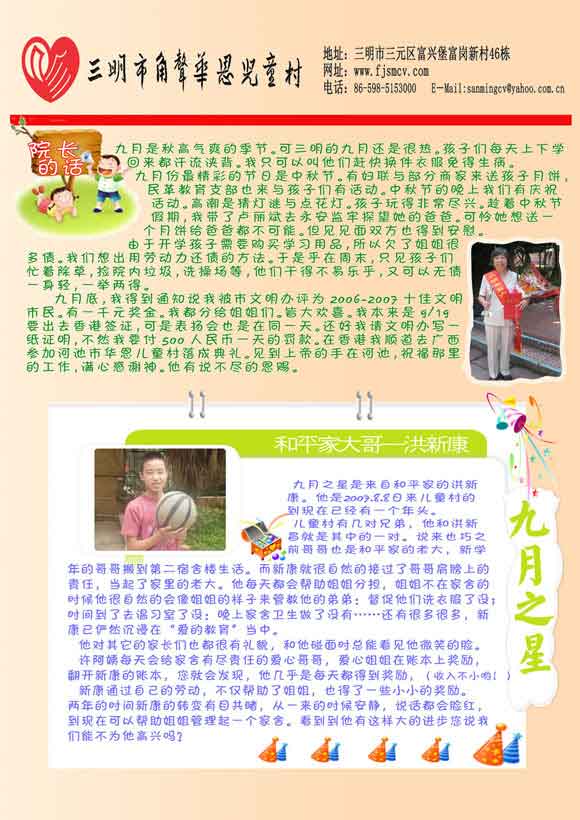 三明市角聲華恩兒童村
地址：三明市三元区富兴堡富岗新村46栋
网址：www.fjsmcv.com
电话：86-598-5153000 E-Mail:sanmingcv@yahoo.com.cn
院长的话
九月是秋高气爽的季节。可三明的九月还是很热。孩子们每天上下学
回来都汗流浃背。我只可以叫他们赶快换件衣服免得生病。
九月份最精彩的节日是中秋节。有妇联与部分商家来送孩子月饼，
民革教育支部也来与孩子们有活动。中秋节的晚上我们有庆祝
活动。高潮是猜灯谜与点花灯。孩子玩得非常尽兴。趁着中秋节
假期，我带了卢丽斌去永安监牢探望她的爸爸。可怜她想送一
个月饼给爸爸都不可能。但见见面双方也得到安慰。
由于开学孩子需要购买学习用品，所以欠了姐姐很
多债。我们想出用劳动力还债的方法。于是乎在周末，只见孩子们
忙着除草，捡院内垃圾，洗操场等，他们干得不易乐乎，又可以无债
一身轻，一举两得。
九月底，我得到通知说我被市文明办评为 2006-2007 十佳文明
市民。有一千元奖金。我都分给姐姐们。皆大欢喜。我本来是 9/19
要出去香港签证，可是表扬会也是在同一天。还好我请文明办写一
纸证明，不然我要付 500 人民币一天的罚款。在香港我顺道去广西
参加河池市华恩儿童村落成典礼。见到上帝的手在河池，祝福那里
的工作，满心感谢神。他有说不尽的恩赐。
和平家大哥—洪新康
九月之星
九月之星是来自和平家的洪新
康。他是2007.8.8日来儿童村的
到现在已经有一个年头。
儿童村有几对兄弟，他和洪新
昌就是其中的一对。说来也巧之
前哥哥也是和平家的老大，新学
年的哥哥搬到第二宿舍楼生活。而新康就很自然的接过了哥哥肩膀上的
责任，当起了家里的老大。他每天都会帮助姐姐分担，姐姐不在家舍的
时候他很自然的会像姐姐的样子来管教他的弟弟：督促他们洗衣服了没；
时间到了去温习室了没；晚上家舍卫生做了没有……还有很多很多，新
康已俨然沉浸在“爱的教育”当中。
他对其它的家长们也都很有礼貌，和他碰面时总能看见他微笑的脸。
许阿姨每天会给家舍有尽责任的爱心哥哥，爱心姐姐在账本上奖励，
翻开新康的账本，您就会发现，他几乎是每天都得到奖励，（收入不小哟！）
新康通过自己的劳动，不仅帮助了姐姐，也得了一些小小的奖励。
两年的时间新康的转变有目共睹，从一来的时候安静，说话都会脸红，
到现在可以帮助姐姐管理起一个家舍。看到到他有这样大的进步您说我
们能不为他高兴吗？